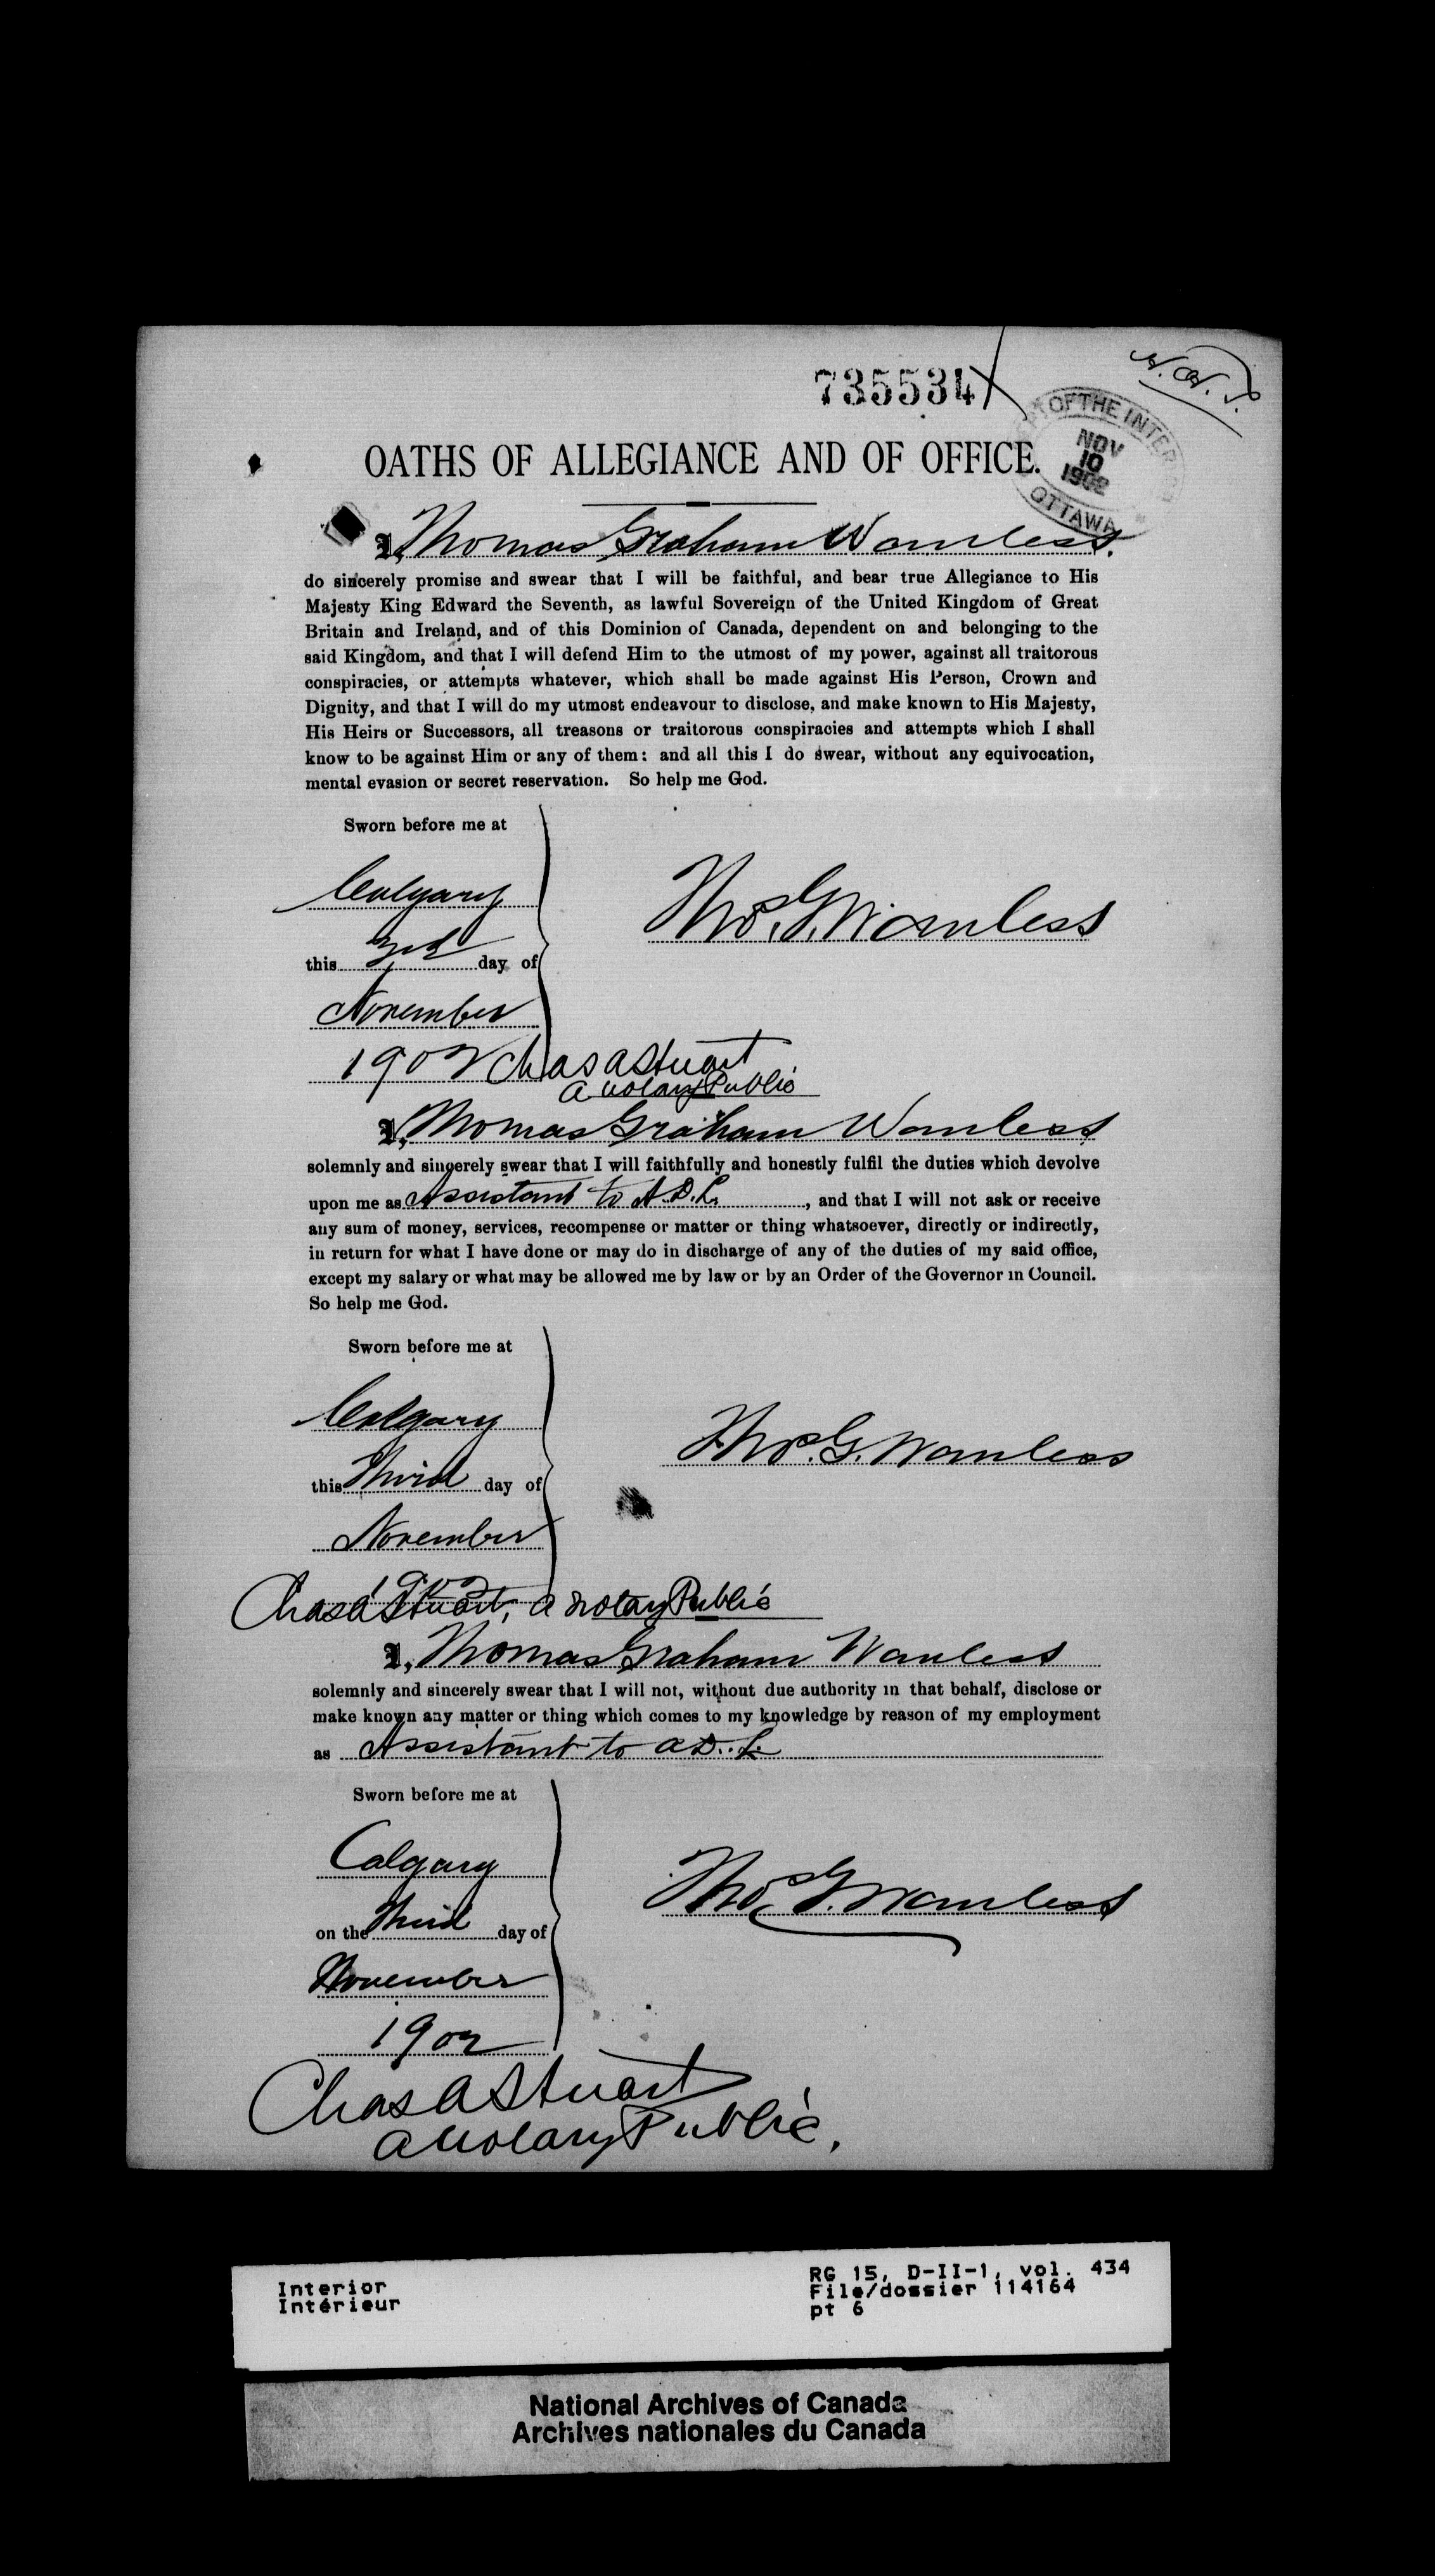 735534
N.A.P.
DEPARTMENT OF THE INTERIOR
NOV
10
1902
OTTAWA
OATHS OF ALLEGIANCE AND OF OFFICE.
I, Thomas Graham Wanless.
do sincerely promise and swear that I will be faithful, and bear true Allegiance to His
Majesty King Edward the Seventh, as lawful Sovereign of the United Kingdom of Great
Britain and Ireland, and of this Dominion of Canada, dependent on and belonging to the
said Kingdom, and that I will defend Him to the utmost of my power, against all traitorous
conspiracies, or attempts whatever, which shall be made against His Person, Crown and
Dignity, and that I will do my utmost endeavour to disclose, and make known to His Majesty,
His Heirs or Successors, all treasons or traitorous conspiracies and attempts which I shall
know to be against Him or any of them: and all this I do swear, without any equivocation,
mental evasion or secret reservation. So help me God.
Sworn before me at
Calgary
Tho.s G. Wanless
this 3rd day of
November
1902 Chas A Stuart
a Notary Public
I, Thomas Graham Wanless
solemnly and sincerely swear that I will faithfully and honestly fulfil the duties which devolve
upon me as Assistant to A.D.L., and that I will not ask or receive
any sum of money, services, recompense or matter or thing whatsoever, directly or indirectly,
in return for what I have done or may do in discharge of any of the duties of my said office,
except my salary or what may be allowed me by law or by an Order of the Governor in Council.
So help me God.
Sworn before me at
Calgary
Tho.s G. Wanless
this Third day of
November
1902
Chas A Stuart, a Notary Public
I, Thomas Graham Wanless
solemnly and sincerely swear that I will not, without due authority in that behalf, disclose or
make known any matter or thing which comes to my knowledge by reason of my employment
as Assistant to A.D.L.
Sworn before me at
Calgary
Tho.s G. Wanless
on the Third day of
November
1902
Chas A Stuart
a Notary Public.
Interior
Intérieur
RG 15, D-II-1, vol. 434
File/dossier 114164
pt 6
National Archives of Canada
Archives nationales du Canada